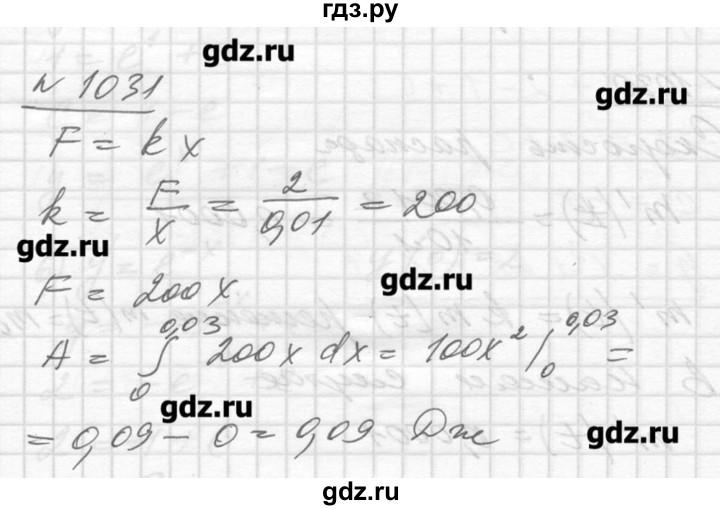 гдз.ру
gdz.ru
№ 1031
gdz.ru
F = kx
k = F/x = 2/0,01 = 200
gdz.ru
F = 200x
gdz.ru
A = ∫₀^0,03 200x dx = 100x² |₀^0,03 =
gdz.ru
= 0,09 − 0 = 0,09 Дж
gdz.ru
gdz.ru